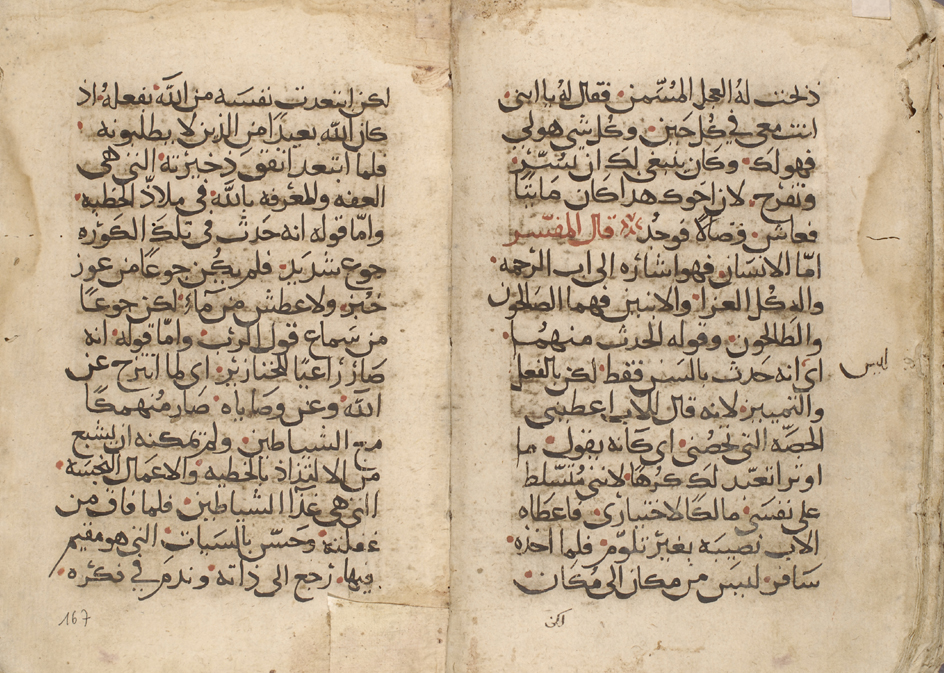 ذبحت له العجل المسمن. فقال له يا ابني
انت معي في كل حين. وكل شي هو لي
فهو لك. وكان ينبغي لك ان تسر
وتفرح. لان اخوك هدا كان مايتًا
فعاش. وضالًا فوجد قال المفسر
امّا الانسان فهو اشاره الى اب الرحمه.
والدكل العزا. والابنين فهما الصالحون
والطالحون. وقوله الحدث منهما.
اي انه حدث بالسن فقط. لكن بالفعل
والتمييز. لانه قال للاب اعطيني
الحصّه التي تخصّني. اي كانه يقول. ما
اوثر اتعبّد لك كرهًا. لانني متسلط
على نفسي. مالكًا لاختياري. فاعطاه
الاب نصيبه بغير تلوّم. فلما اخذه.
سافر. ليس من مكان الى مكان
ليس
لكن
لكن ابتعدت نفسه من الله بفعله. اذ
كان الله بعيدًا من الذين لا يطلبونه.
فلما ابتعد انفق دخيرته التي هي
العفه والمعرفه بالله. في ملاذّ الخطيه.
وامّا قوله انه حدث في تلك الكوره
جوع شديد. فلم يكن جوعًا من عوز
خبز. ولا عطش من مآء. لكن جوعًا
من سماع قول الرب. وامّا قوله. انه
صار راعيًا للخنازير. اي لما انتزح عن
الله. وعن وصاياه. صار منهمكًا
مع الشياطين. ولم يمكنه ان يشبع
من الالتذاذ بالخطيه. والاعمال النجسه.
التي هي غذا الشياطين. فلما فاق من
غفلته. وحسّ بالسيات التي هو مقيم
فيها. رجع الى ذاته. وندم في فكره.
167